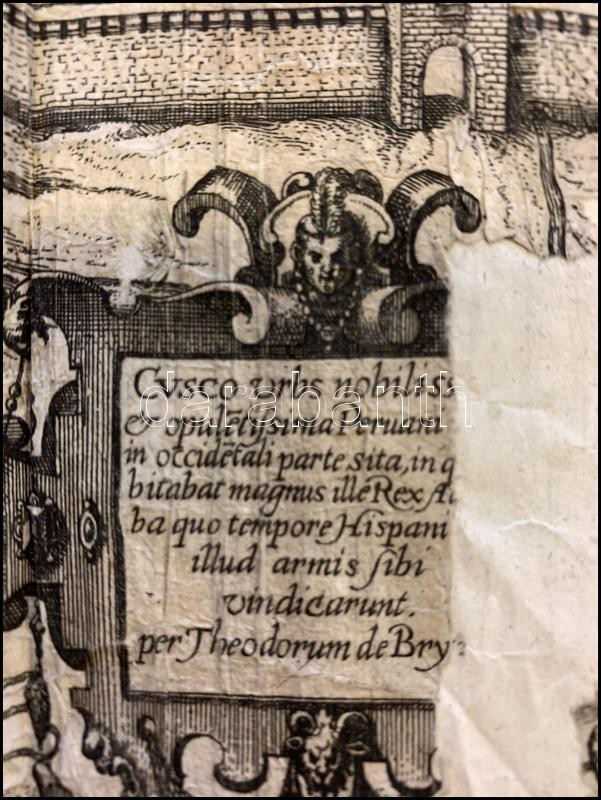 Cusco urbs nobiliss
& opulētissima Peruani
in occidētali parte sita, in q
bitabat magnus ille Rex At
ba quo tempore Hispani
illud armis sibi
vindicarunt.
per Theodorum de Bry
darabanth